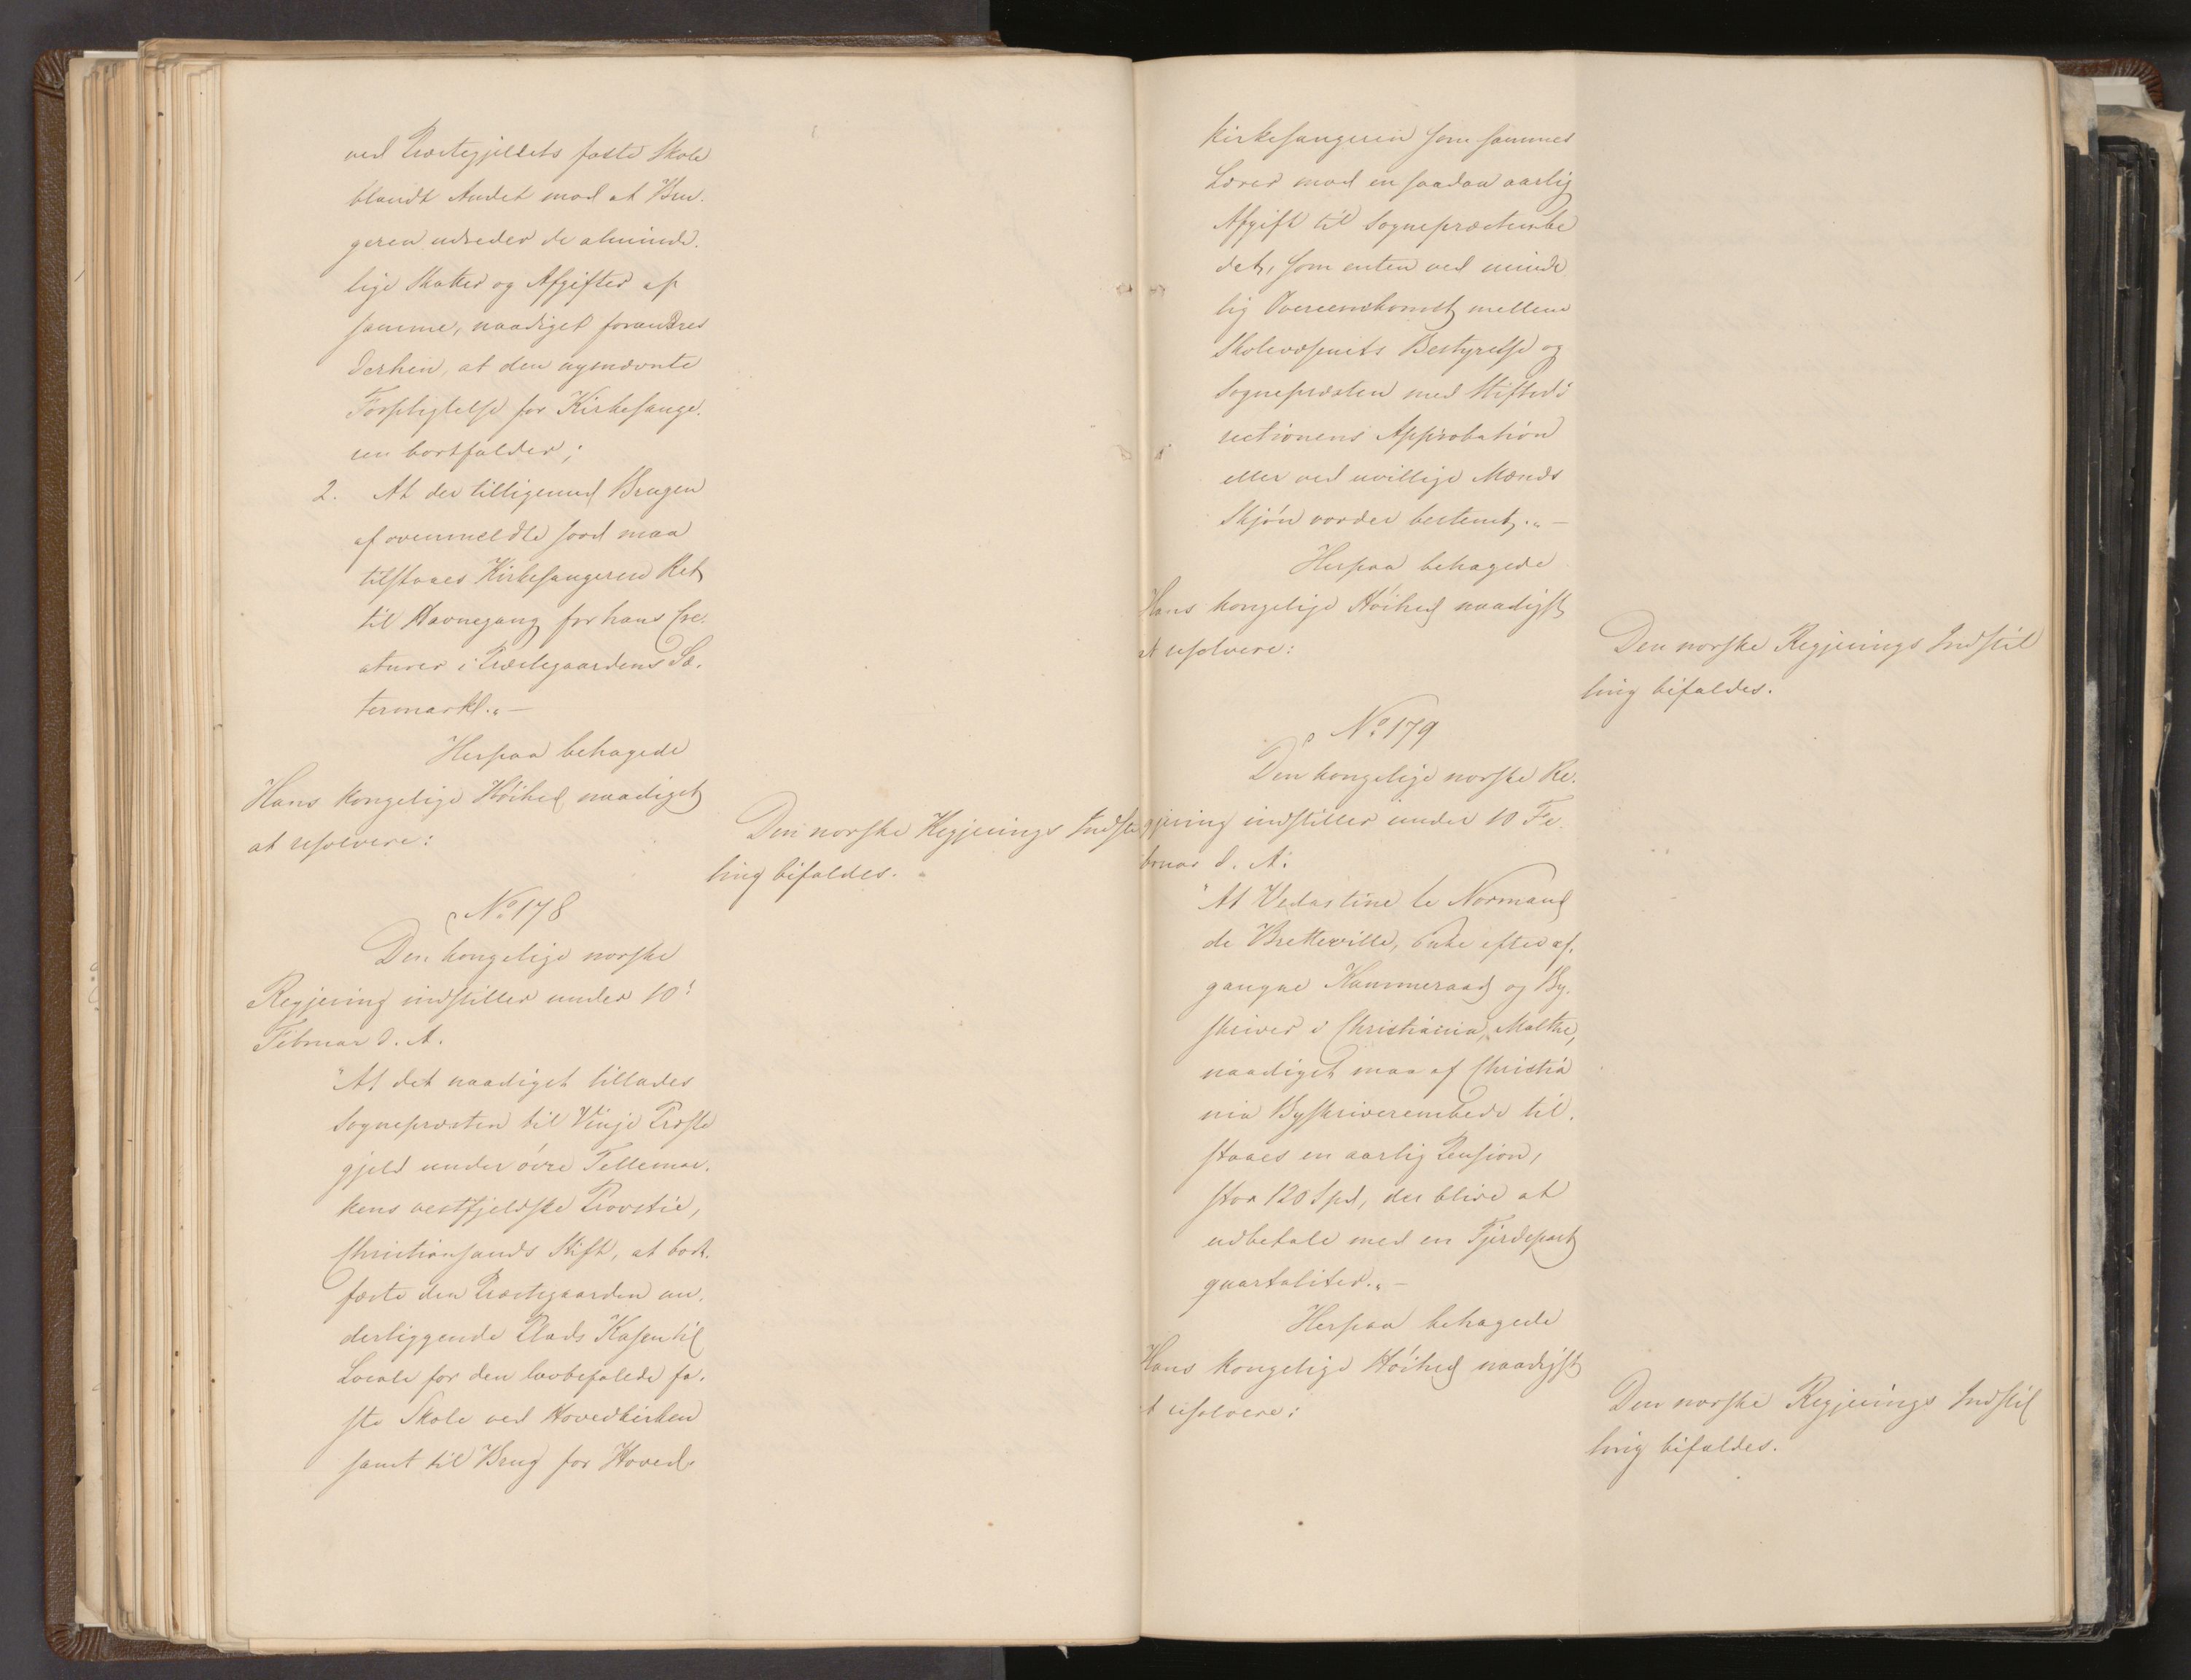 ved Præstegjeldets faste Skole
blandt Andet mod at Bru-
geren udreder de alminde-
lige Skatter og Afgifter af
samme, naadigst forandres
derhen, at den nysnævnte
Forpligtelse for Kirkesange-
ren bortfalder;
2. At der tilligemed Brugen
af ovenmeldte Jord maa
tilstaaes Kirkesangeren Ret
til Havnegang for hans Cre-
aturer i Præstegaardens Sæ-
termark." —
Herpaa behagede
Hans Kongelige Høihed naadigst
at resolvere:
Den norske Regjerings Indstil
ling bifaldes.
No 178
Den kongelige norske
Regjering indstiller under 10'
Februar d. A.
"At det naadigst tillades
Sognepræsten til Vinje Præste
gjeld under øvre Tellemar-
kens vestfjeldske Provstie,
Christiansands Stift, at bort-
fæste den Præstegaarden un-
derliggende Plads Kasen til
Locale for den lovbefalede fa-
ste Skole ved Hovedkirken
samt til Brug for Hoved-
kirkesangeren som sammes
Lærer mod en saadan aarlig
Afgift til Sognepræsteembe
det, som enten ved minde
lig Overeenskomst mellem
Skolevæsenets Bestyrelse og
Sognepræsten med Stiftsdi
rectionens Approbation
eller ved uvillige Mænds
Skjøn vorder bestemt." —
Herpaa behagede
Hans kongelige Høihed naadigst
at resolvere:
Den norske Regjerings Indstil
ling bifaldes.
No 179
Den kongelige norske Re-
gjering indstiller under 10 Fe-
bruar d. A.
"At Vedastine le Normand
de Bretteville, Enke efter af-
gangne Kammeraad og By-
skriver i Christiania, Malthe,
naadigst maa af Christia
nia Byskriverembede til-
staaes en aarlig Pension,
stor 120 Spd, der blive at
udbetale med en Fjerdepart
quartaliter." —
Herpaa behagede
Hans kongelige Høihed naadigst
at resolvere:
Den norske Regjerings Indstil
ling bifaldes.